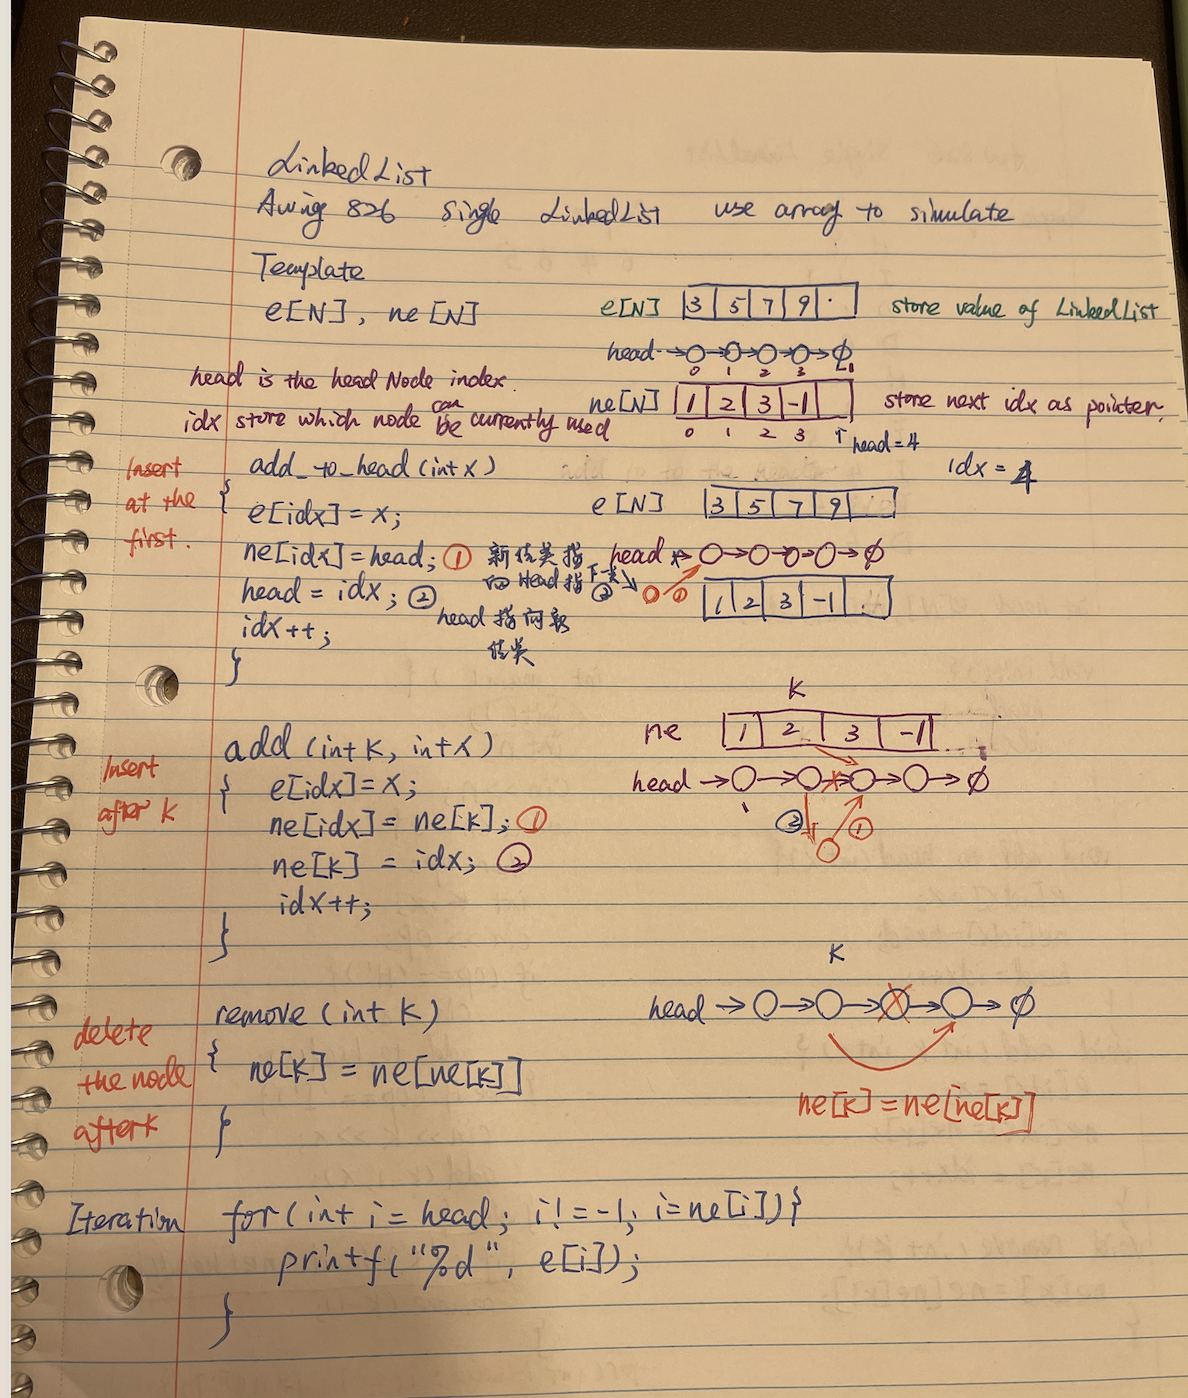 LinkedList
Acwing 826 Single LinkedList use array to simulate
Template
e[N], ne[N]
e[N] 3 5 7 9 . store value of LinkedList
head → O → O → O → O → ∅
0 1 2 3 -1
head is the head Node index.
idx store which node can be currently used
ne[N] 1 2 3 -1 store next idx as pointer.
0 1 2 3 ↑ head=4
idx = 4
Insert at the first.
add_to_head(int x)
{
e[idx]=x;
ne[idx]=head; ①
head = idx; ②
idx++;
}
指
head 指向新
e[N] 3 5 7 9
head → O → O → O → O → ∅
② ①
1 2 3 -1 .
Insert after K
add (int K, int X)
{
e[idx]=x;
ne[idx]= ne[k]; ①
ne[k] = idx; ②
idx++;
}
K
ne 1 2 3 -1
head → O → O → O → O → ∅
② ①
delete the node after k
remove (int K)
{
ne[k] = ne[ne[k]]
}
K
head → O → O → O → O → ∅
ne[k]=ne[ne[k]]
Iteration for(int i = head; i!=-1; i=ne[i]){
printf("%d", e[i]);
}